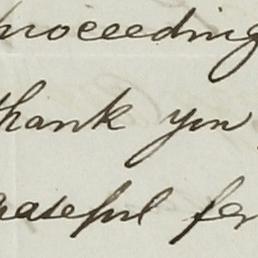 proceeding
thank you
rateful for